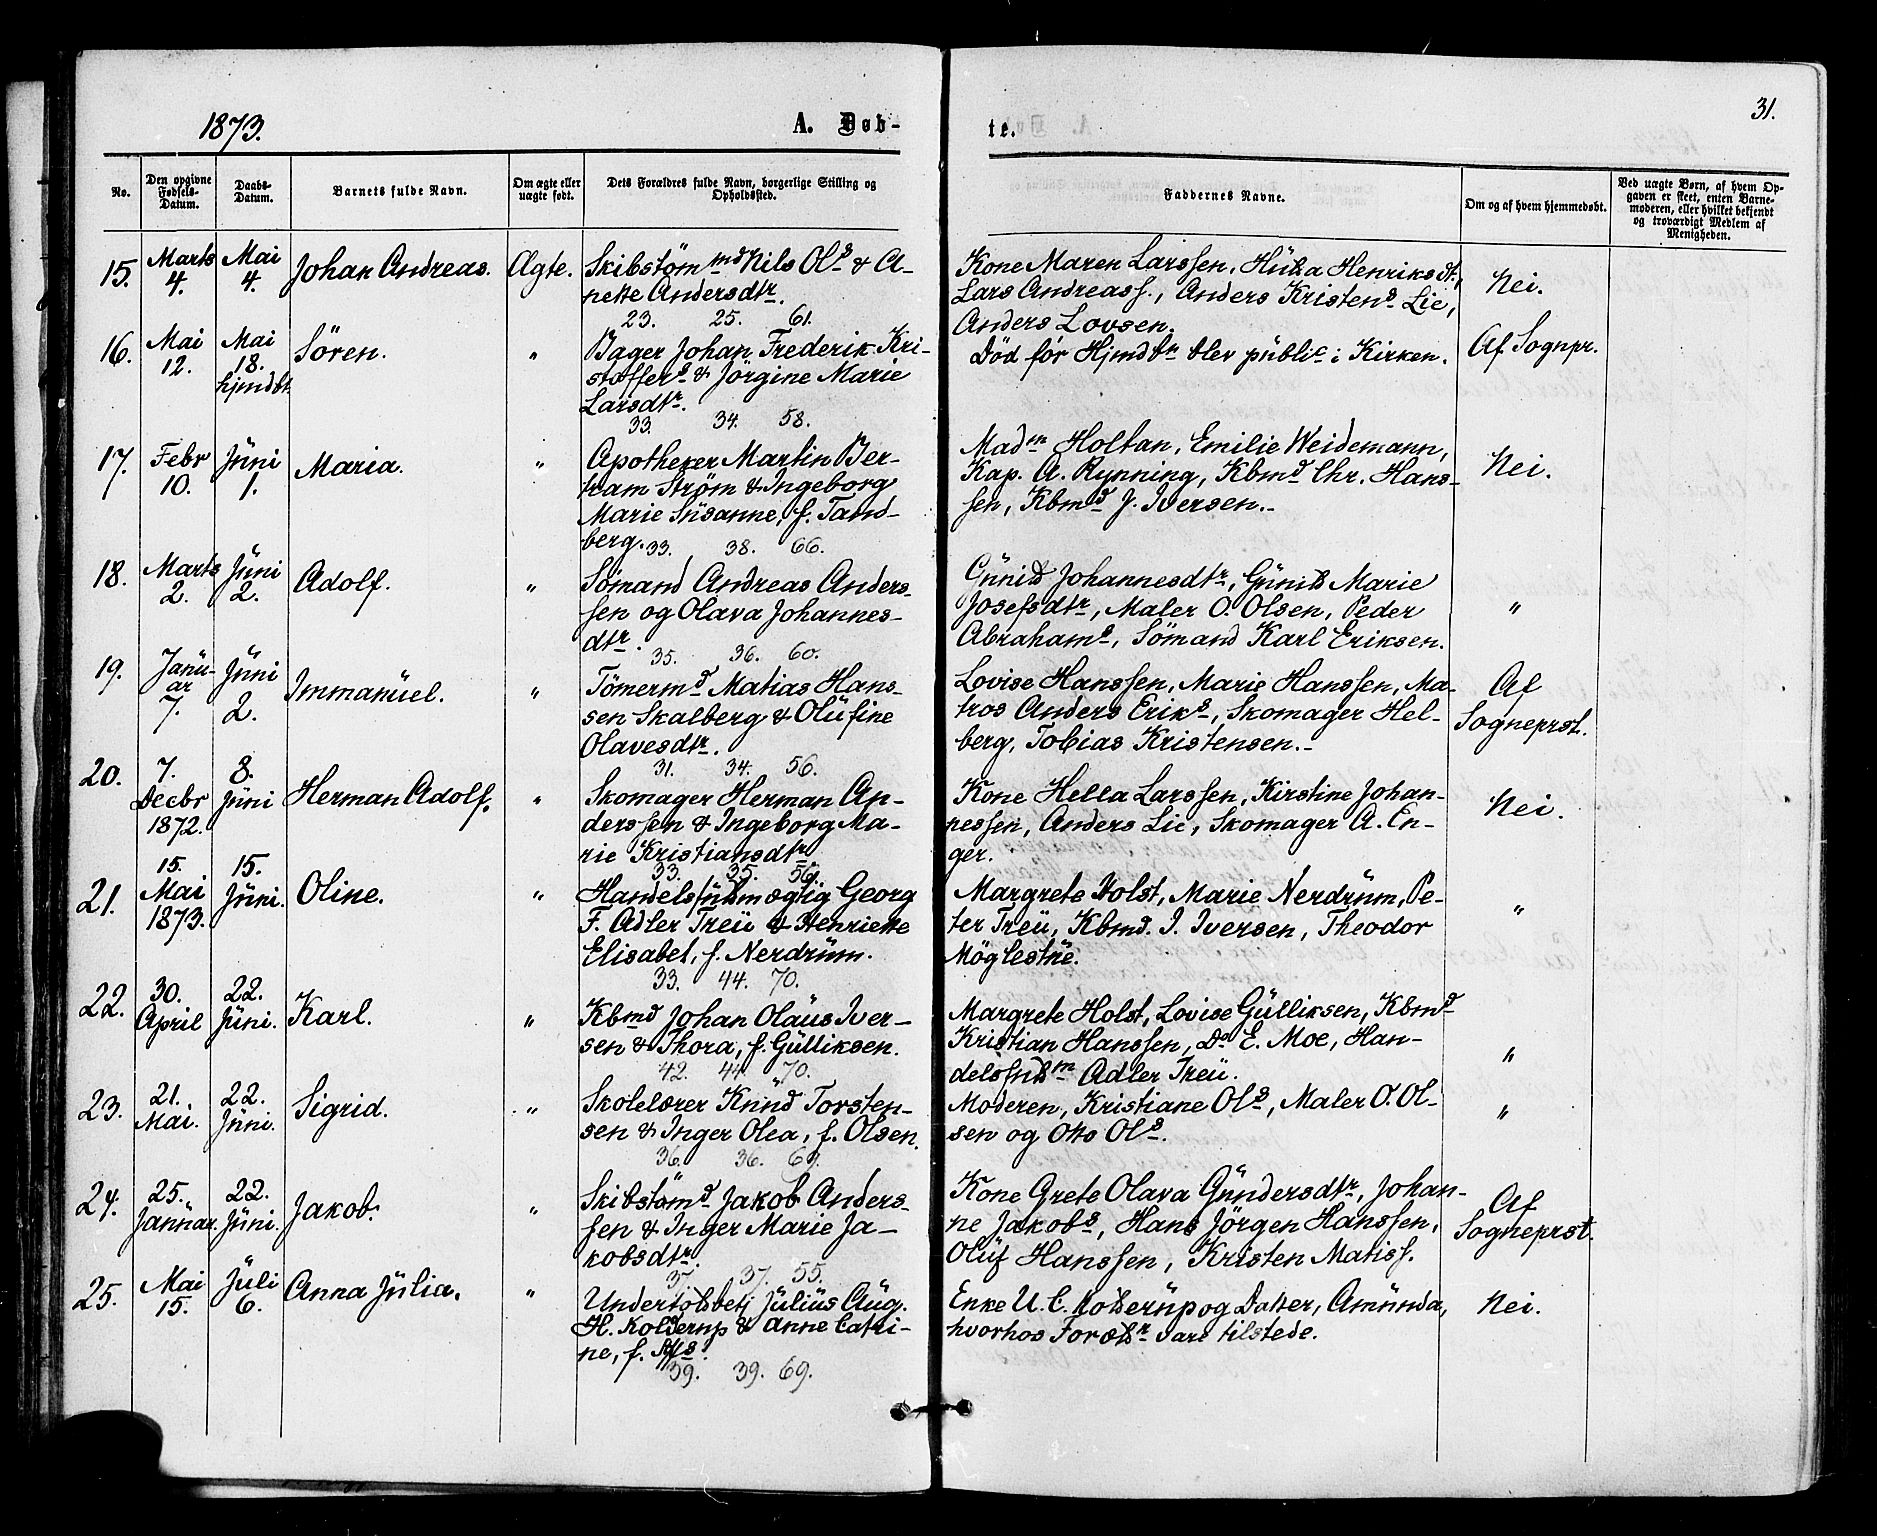 1873.
A. Døb-
te.
31.
No.
Den opgivne Fødsels-Datum.
Daabs-Datum.
Barnets fulde Navn.
Om ægte eller uægte født.
Dets Forældres fulde Navn, borgerlige Stilling og Opholdssted.
Faddernes Navne.
Om og af hvem hjemmedøbt.
Ved uægte Børn, af hvem Op-
gaven er skeet, enten Barne-
moderen, eller hvilket bekjendt
og troværdigt Medlem af
Menigheden.
15. Marts 4. Mai 4. Johan Andreas. Ægte.
Skibstøm md Nils Ols & A-
nette Andersdtr.
23. 25. 61.
Kone Maren Larssen, Henriksdt,
Lars Andreass., Anders Kristens Lie,
Anders Lovsen.
Nei.
16. Mai 12. Mai 18. hjmdbt. Sören. "
Bager Johan Frederik Kri-
stoffers & Jörgine Marie
Larsdtr.
33. 34. 58.
Död för Hjmdbn blev public i Kirken.
Af Sognpr.
17. Febr 10. Jüni 1. Maria. "
Apotheker Martin Ber-
tram Ström & Ingeborg
Marie Süsanne, f. Tand-
berg.
33. 38. 66.
Madm Holtan, Emilie Weidemann,
Kap. A. Rynning, Kbmd Chr. Hans-
sen, Kbmd J. Iversen.
Nei.
18. Marts 2. Jüni 2. Adolf. "
Sömand Andreas Anders-
sen og Olava Johannes-
dtr.
35. 36. 60.
Günild Johannesdtr, Günild Marie
Josefsdtr, Maler O. Olsen, Peder
Abrahams, Sömand Karl Eriksen.
"
19. Janü-
ar 7. Jüni 2. Immanüel. "
Tömermd Matias Hans-
sen Skalberg & Olüfine
Olavesdtr.
31. 34. 56.
Lovise Hanssen, Marie Hanssen, Ma-
tros Anders Eriks, Skomager Hel-
berg, Tobias Kristensen.
Af
Sogneprst.
20. 7. Decbr 1872. 8. Jüni Herman Adolf. "
Skomager Herman An-
derssen & Ingeborg Ma-
rie Kristiansdtr.
33. 35. 56.
Kone Hella Larssen, Kirstine Johan-
nessen, Anders Lie, Skomager A. En-
ger.
Nei.
21. 15. Mai 1873. 15. Jüni. Oline. "
Handelsfüldmægtig Georg
F. Adler Treü & Henriette
Elisabet, f. Nerdrüm.
33. 44. 70.
Margrete Holst, Marie Nerdrüm, Pe-
ter Treü, Kbmd. I. Iversen, Theodor
Möglestüe.
"
22. 30. April 22. Jüni. Karl. "
Kbmd Johan Olaüs Iver-
sen & Thora, f. Gülliksen.
42. 44. 70.
Margrete Holst, Lovise Gülliksen, Kbmd
Kristian Hanssen, Do E. Moe, Han-
delsfuldm Adler Treü.
"
23. 21. Mai. 22. Jüni. Sigrid. "
Skolelærer Knüd Torsten-
sen & Inger Olea, f. Olsen.
36. 36. 69.
Moderen, Kristiane Ols, Maler O. Ol-
sen og Otto Ols.
"
24. 25. Janüar. 22. Jüni. Jakob. "
Skibstömd Jakob Anders-
sen & Inger Marie Ja-
kobsdtr.
37. 37. 55.
Kone Grete Olava Gündersdtr, Johan-
ne Jakobs, Hans Jörgen Hanssen,
Olüf Hanssen, Kristen Matiss.
Af
Sogneprst.
25. Mai 15. Jüli 6. Anna Jülia. "
Undertoldbetj Jülius Aüg.
H. Kolderup & Anne Catri-
ne, f.
39. 39. 69.
Enke U. C. Kolderüp og Datter, Amünda,
hvorhos Foreldr vare tilstede.
Nei.